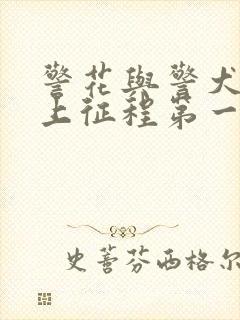 警花與警犬
上征程第一
史蒈芬西格尔